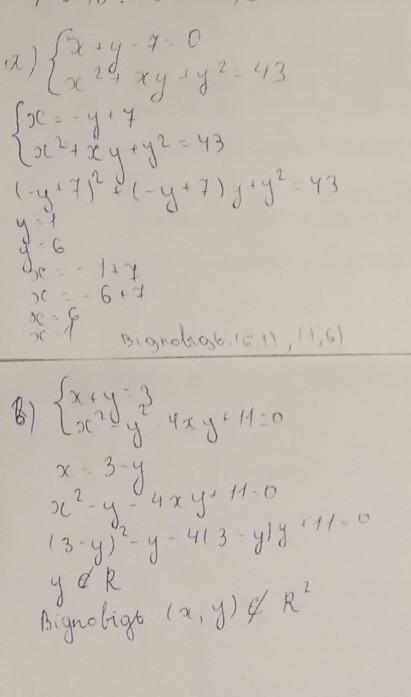 а) { x + y - 7 = 0
x² + xy + y² = 43
{ x = -y + 7
x² + xy + y² = 43
(-y + 7)² + (-y + 7) y + y² = 43
y = 1
y = 6
x = -1 + 7
x = -6 + 7
x = 6
x = 1
Відповідь. (6, 1), (1, 6)
в) { x + y = 3
x² - y² 4xy + 11 = 0
x = 3 - y
x² - y - 4xy + 11 = 0
(3 - y)² - y - 4(3 - y)y + 11 = 0
y ∉ R
Відповідь (x, y) ∉ R²